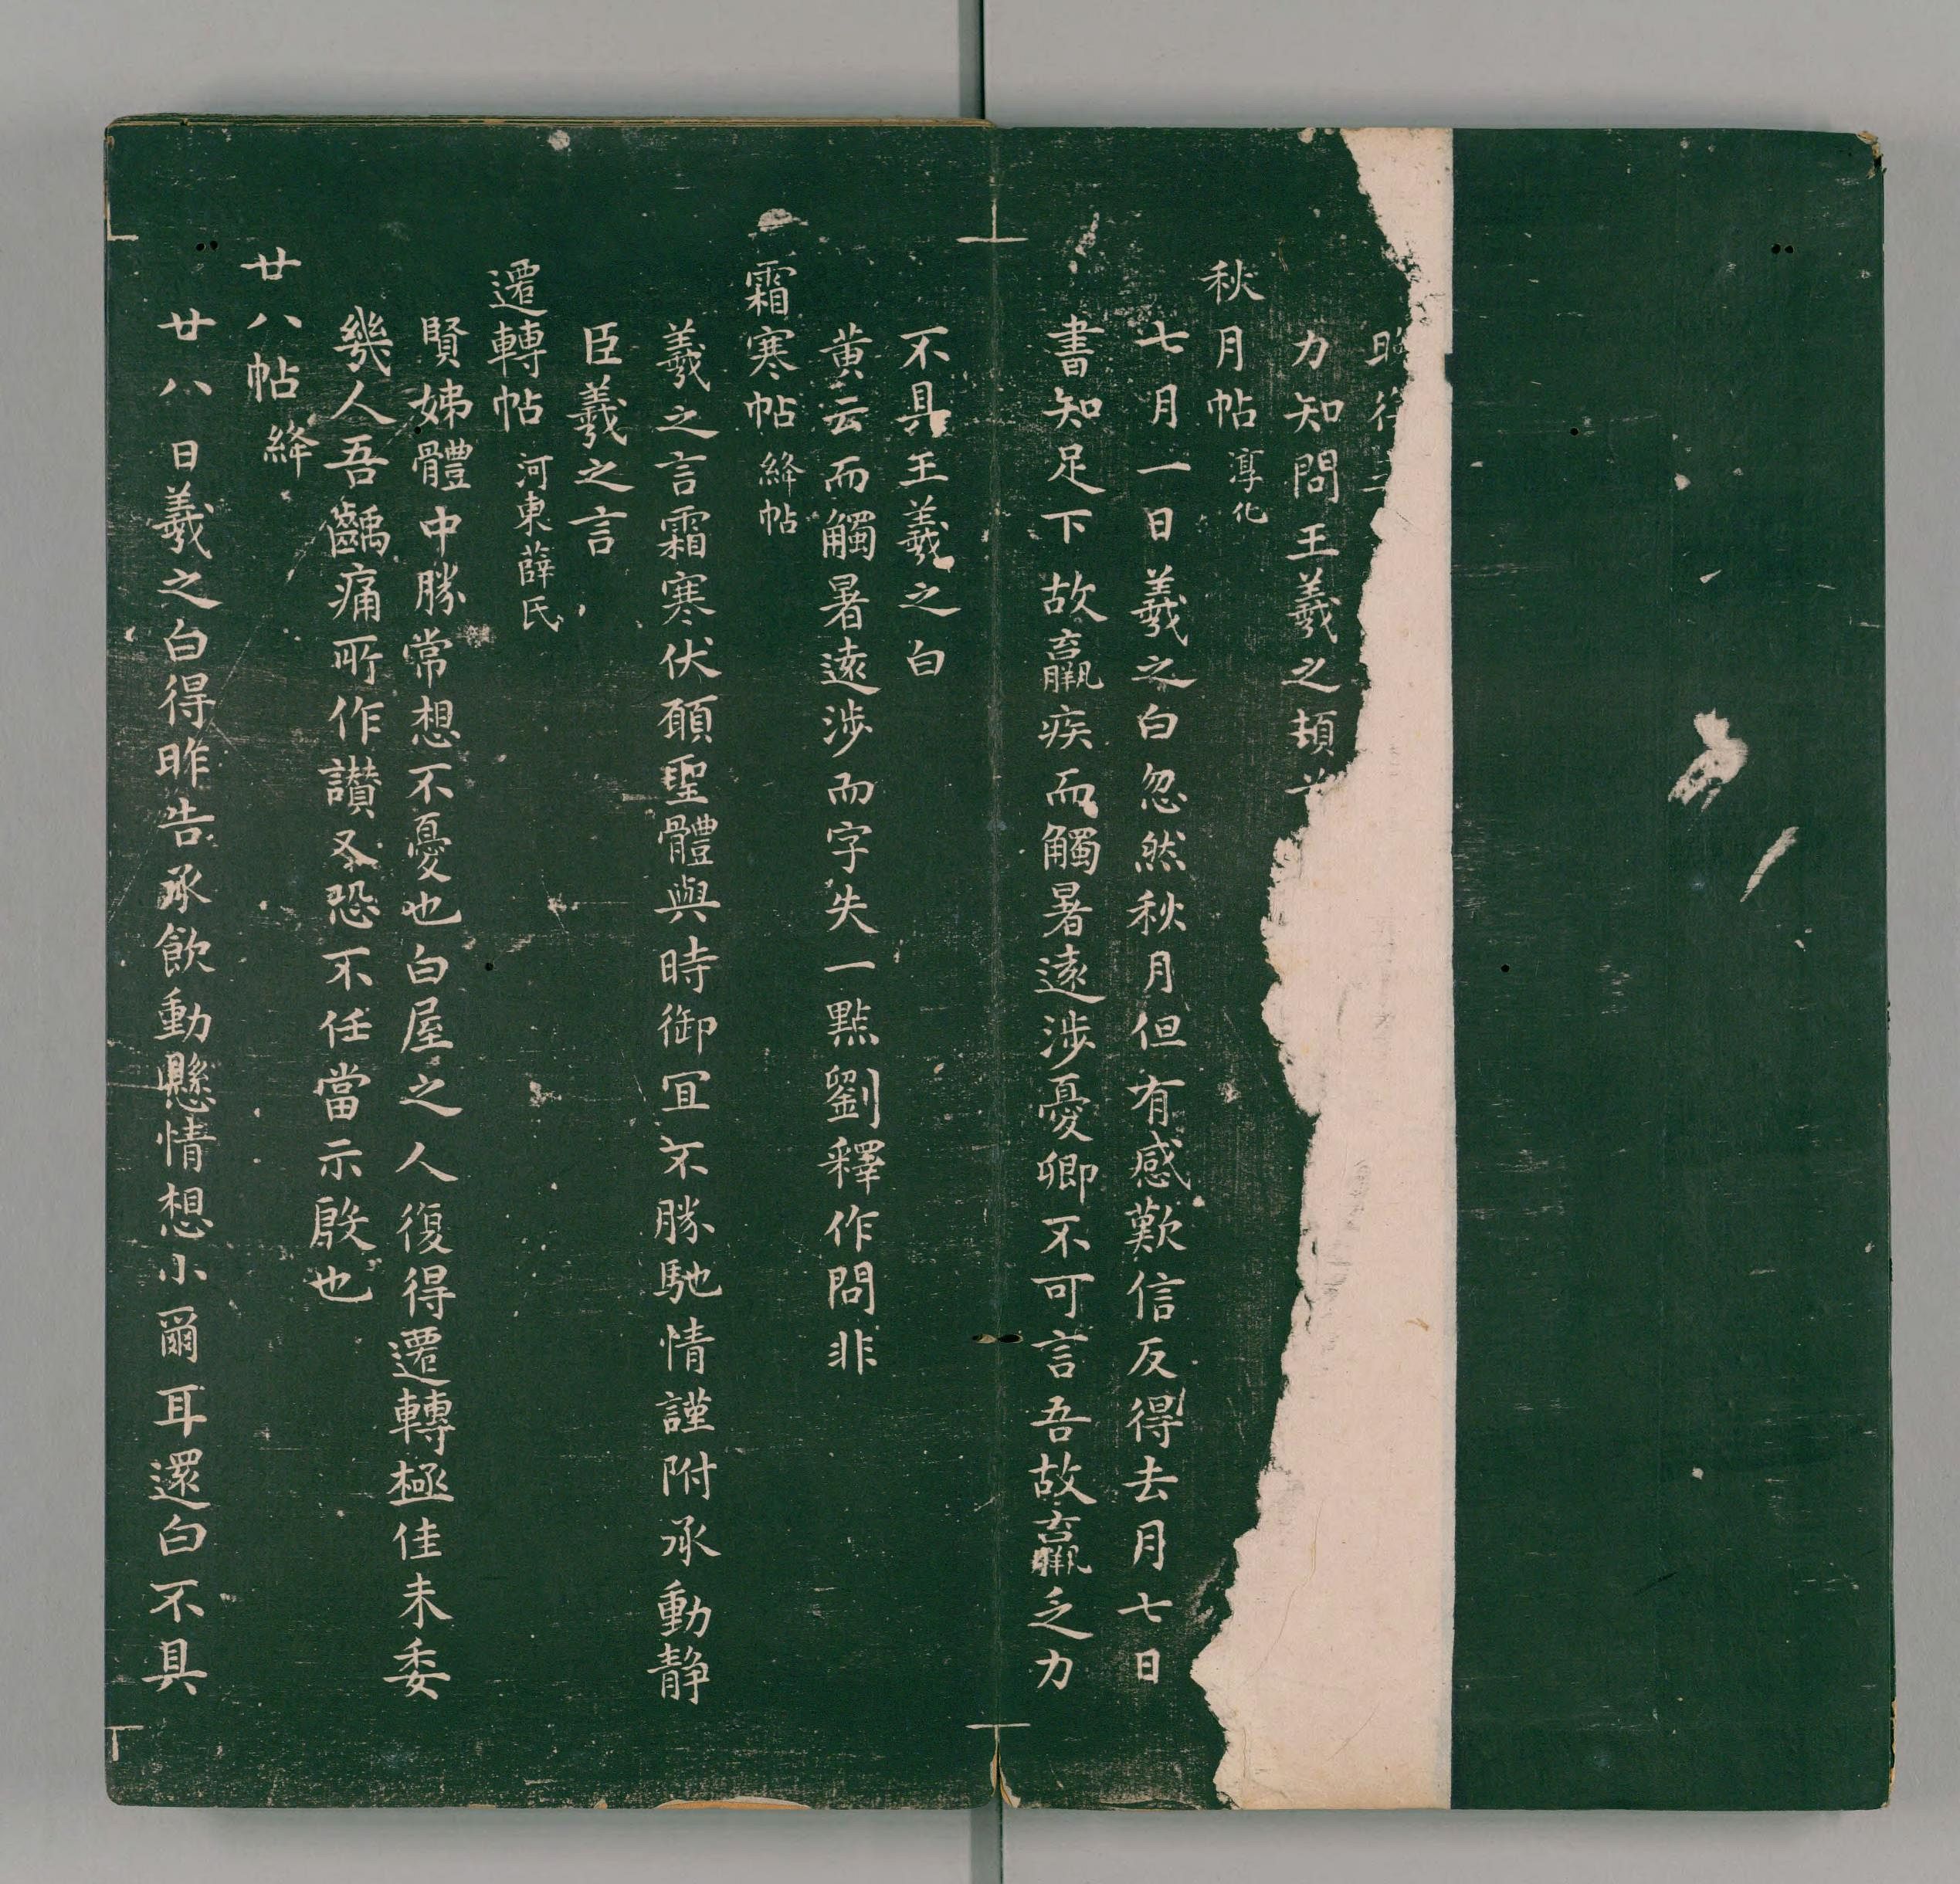 力知問王羲之頓
秋月帖 淳化
七月一日羲之白忽然秋月但有感歎信反得去月七日
書知足下故羸疾而觸暑遠涉憂卿不可言吾故羸乏力
不具王羲之白
黄云而觸暑遠涉而字失一點劉釋作問非
霜寒帖 絳帖
羲之言霜寒伏願聖體與時御宜不勝馳情謹附承動静
臣羲之言
遷轉帖 河東薛氏
賢姊體中勝常想不憂也白屋之人復得遷轉極佳未委
幾人吾齲痛所作讚又恐不任當示殷也
廿八帖 絳
廿八日羲之白得昨告承飲動懸情想小爾耳還白不具